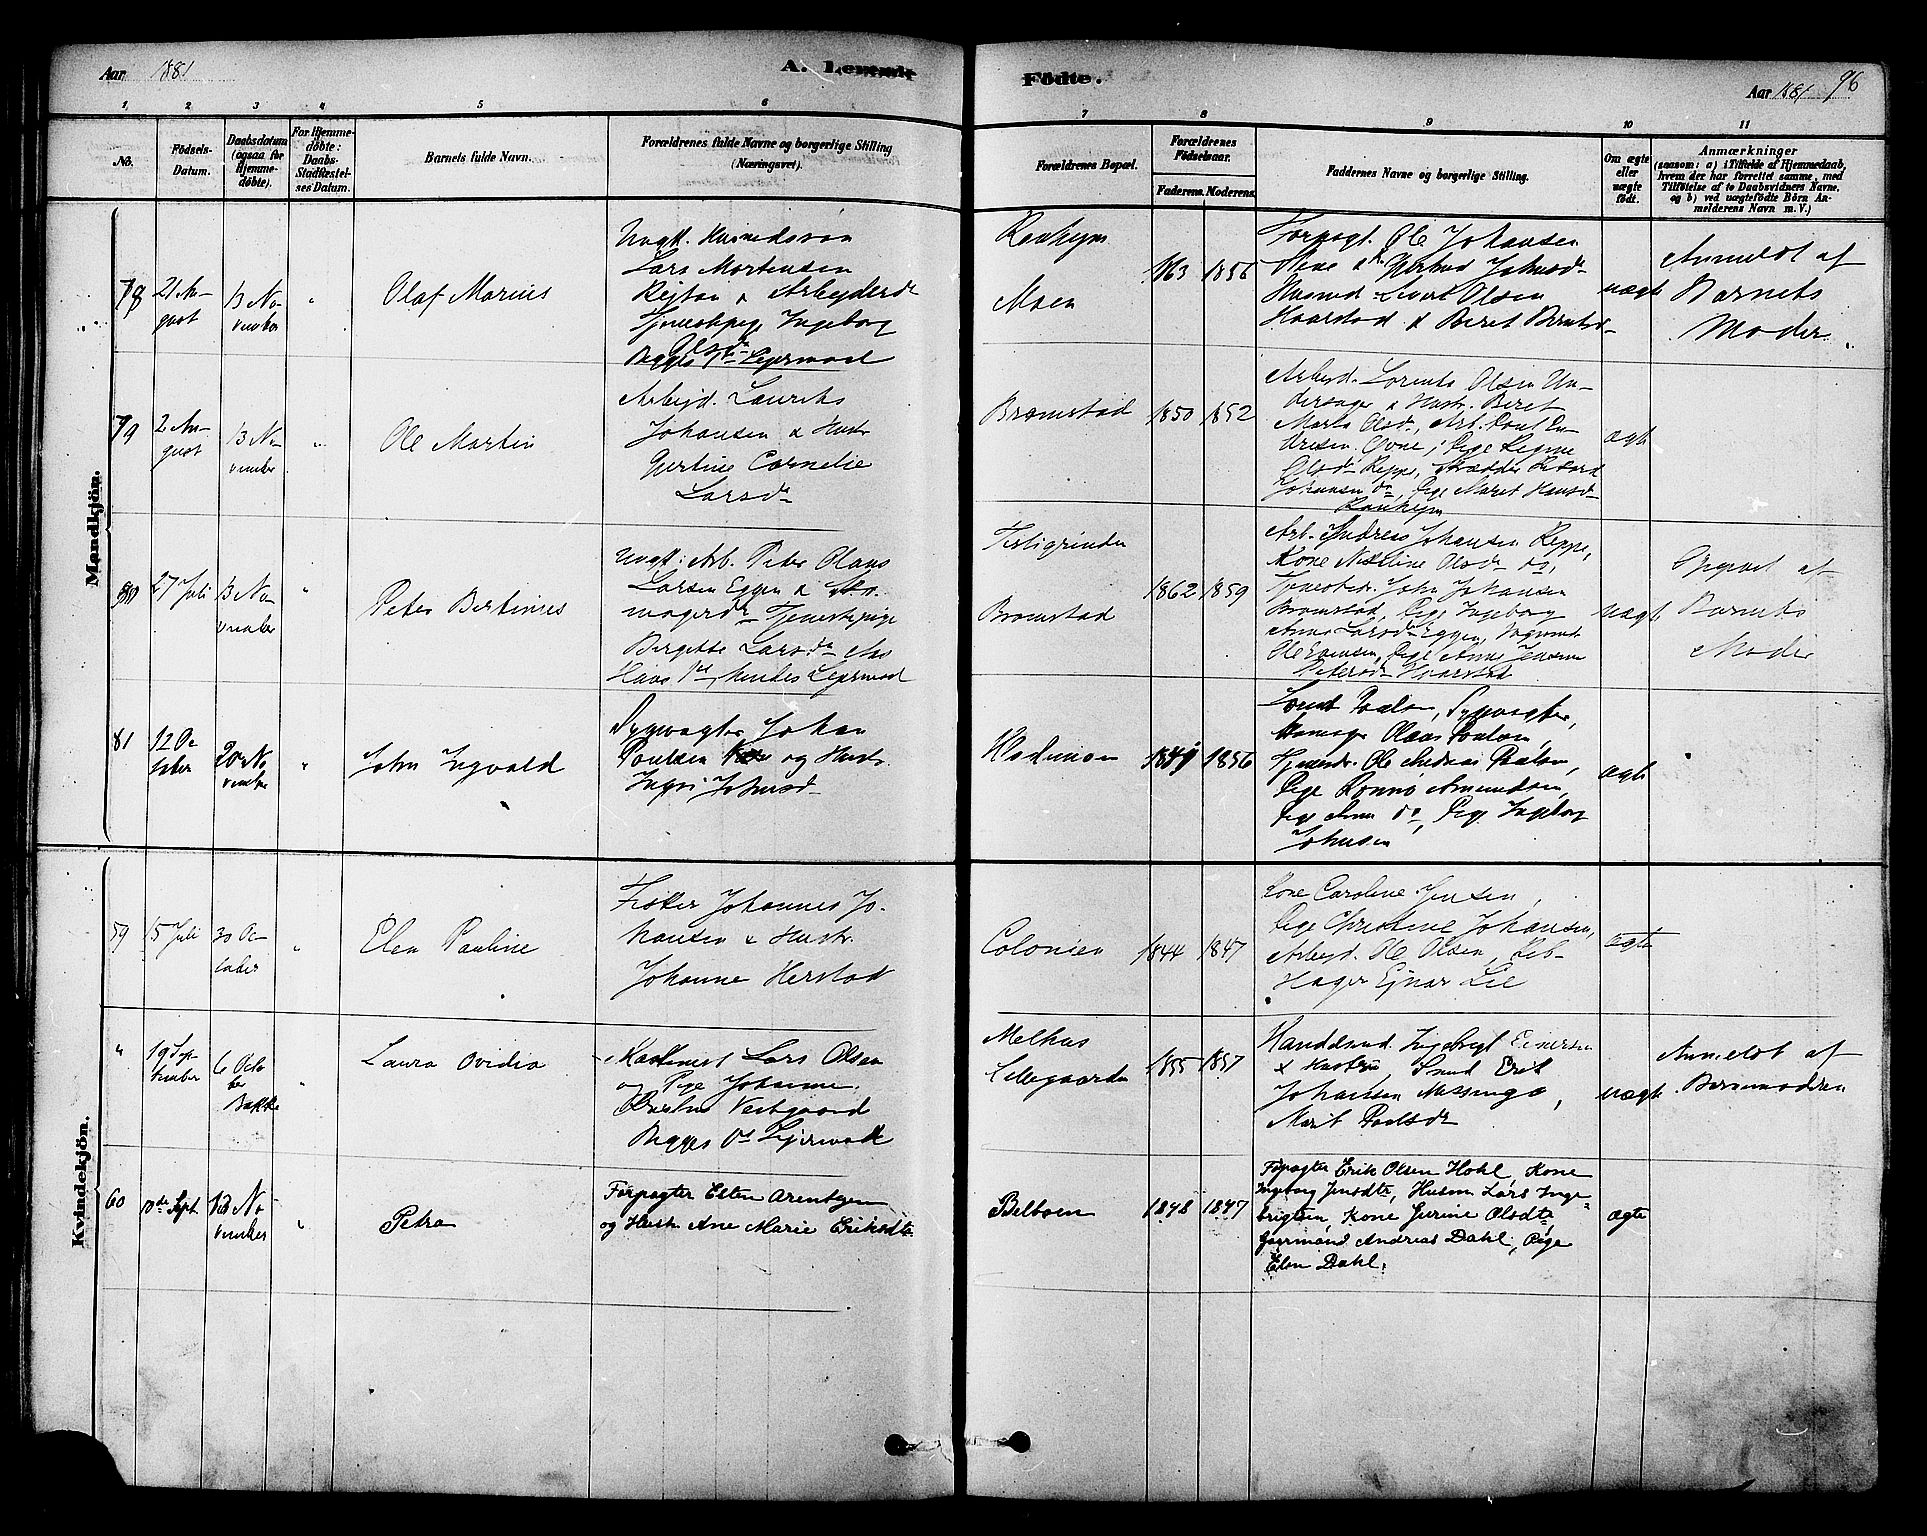 Aar 1881
A. Levende
Födte.
Aar 1881
96
1 2 3 4 5 6 7 8 9 10 11
No.
Födsels-Datum.
Daabsdatum (ogsaa for Hjemmedöbte).
For Hjemmedöbte: Daabs-Stadfæstelses Datum.
Barnets fulde Navn.
Forældrenes fulde Navne og borgerlige Stilling (Næringsvei).
Forældrenes Bopæl.
Forældrenes Födselsaar.
Faderens. Moderens.
Faddernes Navne og borgerlige Stilling.
Om ægte eller uægte födt.
Anmærkninger
(saasom: a) i Tilfælde af Hjemmedaab,
hvem der har forrettet samme, med
Tilföielse af to Daabsvidners Navne,
og b) ved uægtefödte Börn An-
melderens Navn m. V.)
Mandkjön.
78
21 Au-
gust
13 No-
vember
"
Olaf Marius
Ungk. Husmandssön
Lars Mortensen
Reitan & Arbeiderd
Tjenestepige Ingeborg
Olsdr
Begges 1ste Lejermaal
Ranhejm
Moen
1863 1856
Forpagt. Ole Johansen
Johnsdr
Husmd Sivert Olsen
Haarstad & Beret Berntsdr
uægte
Anmeldt af
Barnets
Moder.
79
2 Au-
gust
13 No-
vember
"
Ole Martin
Arbejd. Laurits
Johansen & Hustr.
Gjertine Cornelie
Larsdr
Bromstad
1850 1852
Arbejd. Lorents Olsen Un-
dersager & Hustr. Beret
Marta Olsdr, Arb.
dresen Pige Regine
Olsdr Reppe, Skrædder
Johansen do, Pige Maret Hansdr
Ranhejm
ægte
80
27 Juli
13 No-
vember
"
Peter Bertinius
Ungk. Arb. Peter Olaus
Larsen Eggen & Sko-
magerdr Tjenestepige
Birgitte Larsdr
Hans 1ste, hendes Lejermaal
Testigrinden
Bromstad
1862 1859
Arb. Andreas Johansen Reppe,
Kone Olsdr do,
Tjenestedr. John Johansen
Bromstad, Pige Ingeborg
Anna Larsdr Eggen, Ungmd
Ole Evensen, Pige Anne Jensine
Petersdr Haarstad
uægte
Opgivet af
Barnets
Moder
81
12 Oc-
tober
20 No-
vember
"
John Ingvald
Sygevogter Johan
Poulsen og Hustr.
Ingri Johnsdr
1849 1856
Poulsen, Sygevogter,
Olaus Poulsen,
Tjenestdr. Ole Andreas Poulsen,
Pige Rönnö Amundsen,
Pige Anna do, Pige Ingeborg
Johnsen
ægte
Kvindekjön.
59
15 Juli
30 Oc-
tober
"
Elen Pauline
Fisker Johannes Jo-
hansen & Hustr.
Johanne Herstad
Colonien
1844 1847
Kone Caroline Jensen,
Pige Christine Johansen,
Arbejd. Ole Olsen, Reb-
slager Ejnar Lie
ægte
"
19 Sep-
tember
6 Octo-
ber
Bakke
"
Laura Ovidia
Lars Olsen
og Pige Johanne
Vestgaard
Begges 1ste Lejermaal
Melhus
Lillegaarden
1855 1857
Handelsmd. Ingebrigt Einersen
& Hustru, Smed Erik
Johansen
Marit Poulsdr
uægte
Anmeldt af
Barnemoderen
60
10de Sept.
13 No-
vember
"
Petra
Forpagter Esten Arentsen
og Hustr. Ane Marie Eriksdtr
Belboen
1848 1847
Forpagter Erik Olsen Hohl, Kone
Ingeborg Jensdtr, Husm. Lars Inge-
brigtsen, Kone Gurine Olsdtr,
Gaarmand Andreas Dahl, Pige
Elen Dahl.
ægte